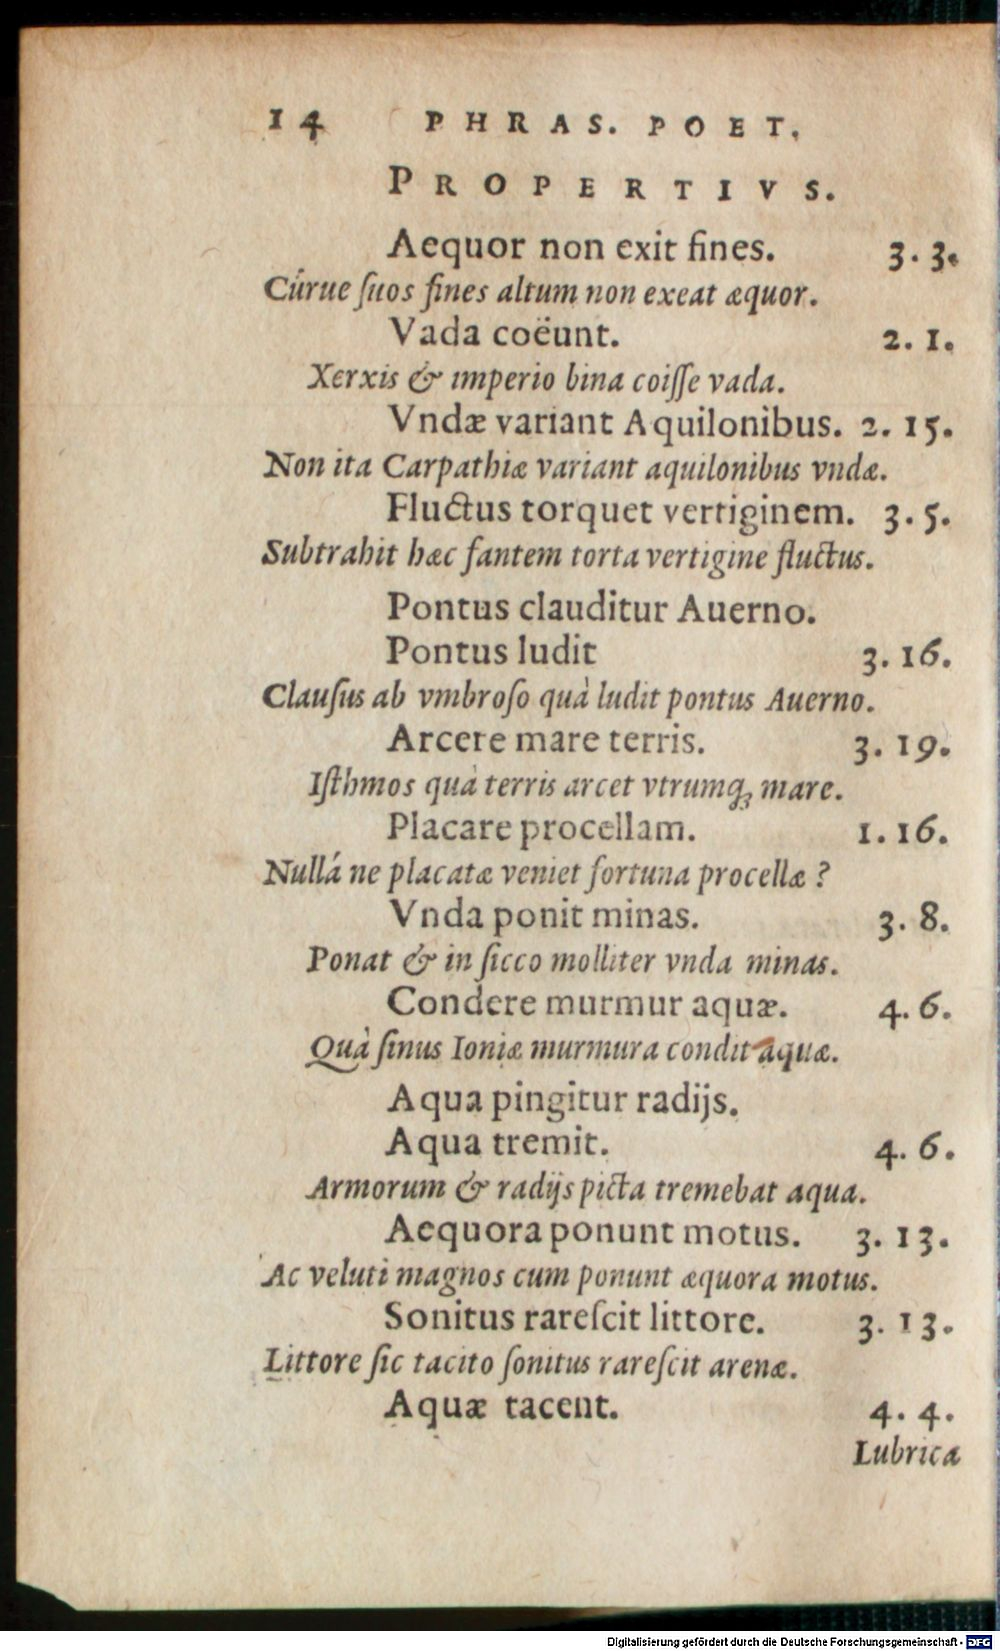 14 PHRAS. POET.
PROPERTIVS.
Aequor non exit fines. 3. 3.
Cúrue ſuos fines altum non exeat æquor.
Vada coëunt. 2. 1.
Xerxis & imperio bina coiſſe vada.
Vndæ variant Aquilonibus. 2. 15.
Non ita Carpathiæ variant aquilonibus vndæ.
Fluctus torquet vertiginem. 3. 5.
Subtrahit hæc fantem torta vertigine fluctus.
Pontus clauditur Auerno.
Pontus ludit 3. 16.
Clauſus ab vmbroſo quà ludit pontus Auerno.
Arcere mare terris. 3. 19.
Iſthmos quà terris arcet vtrumq; mare.
Placare procellam. 1. 16.
Nullá ne placatæ veniet fortuna procellæ ?
Vnda ponit minas. 3. 8.
Ponat & in ſicco molliter vnda minas.
Condere murmur aquæ. 4. 6.
Quà ſinus Ioniæ murmura condit aquæ.
Aqua pingitur radijs.
Aqua tremit. 4. 6.
Armorum & radijs picta tremebat aqua.
Aequora ponunt motus. 3. 13.
Ac veluti magnos cum ponunt æquora motus.
Sonitus rareſcit littore. 3. 13.
Littore ſic tacito ſonitus rareſcit arenæ.
Aquæ tacent. 4. 4.
Lubrica
Digitalisierung gefördert durch die Deutsche Forschungsgemeinschaft - DFG